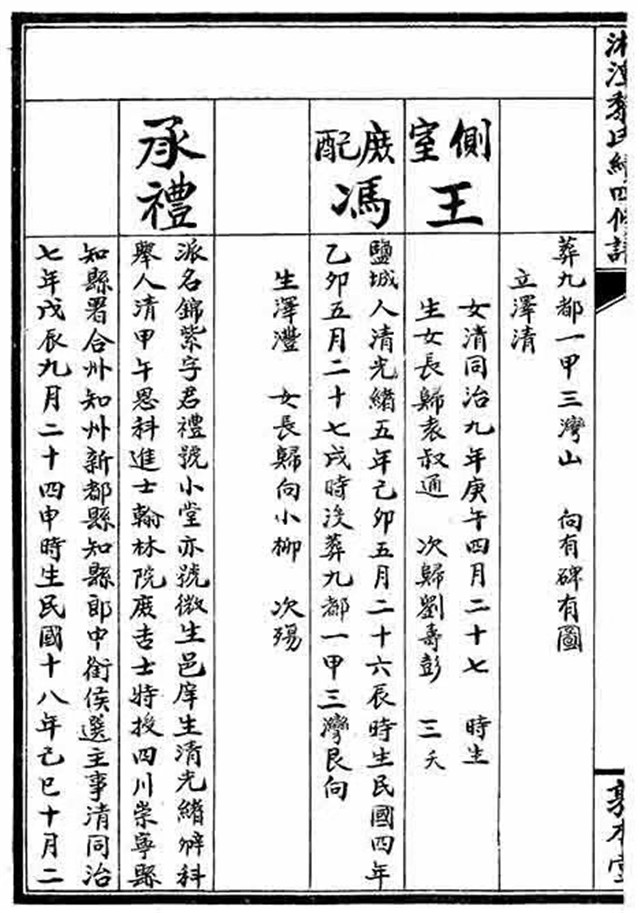 湘潭黎氏續四修譜
敦本堂
葬九都一甲三灣山 向有碑有圖
立澤清
側室
王
女清同治九年庚午四月二十七 時生
生女長歸袁叔通 次歸劉壽彭 三夭
庶配
馮
鹽城人清光緒五年己卯五月二十六辰時生民國四年
乙卯五月二十七戌時沒葬九都一甲三灣艮向
生澤灃 女長歸向小柳 次殤
承禮
派名錦紫字君禮號小堂亦號微生邑庠生清光緒辦科
舉人清甲午恩科進士翰林院庶吉士特授四川崇寧縣
知縣署合州知州新都縣知縣郎中銜侯選主事清同治
七年戊辰九月二十四申時生民國十八年己巳十月二